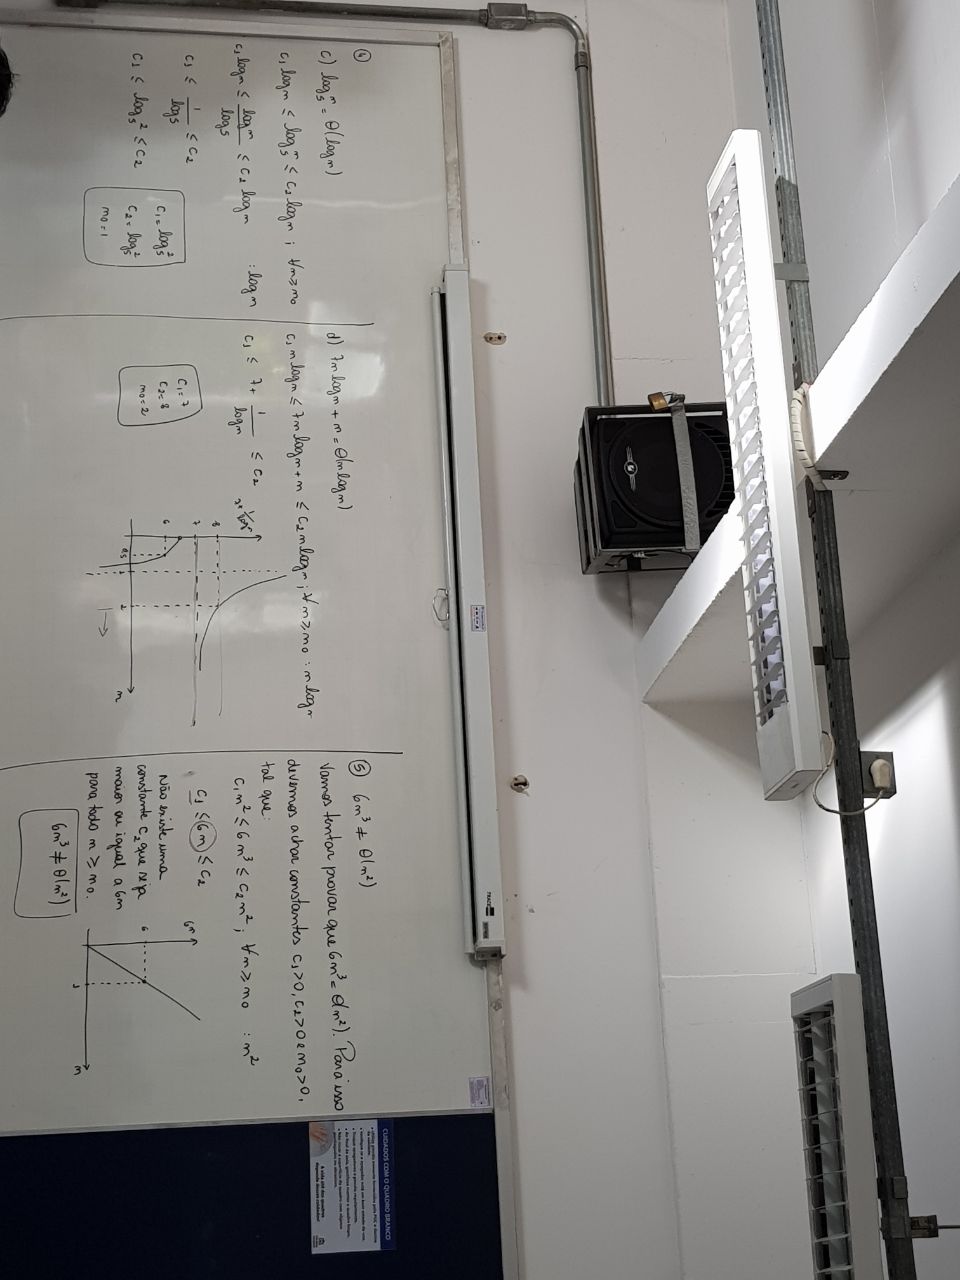 ④
c) log₅ⁿ = θ(log n)
c₁ log n ≤ log₅ⁿ ≤ c₂ log n ; ∀n ≥ n₀
c₁ log n ≤ log n / log 5 ≤ c₂ log n : log n
c₁ ≤ 1 / log 5 ≤ c₂
c₁ ≤ log₅² ≤ c₂
c₁ = log₅²
c₂ = log₅²
n₀ = 1
d) 7n log n + n = θ(n log n)
c₁ n log n ≤ 7n log n + n ≤ c₂ n log n ; ∀n ≥ n₀ : n log n
c₁ ≤ 7 + 1 / log n ≤ c₂
c₁ = 7
c₂ = 8
n₀ = 2
8
7
6
0,5
1
2
n
⑤ 6n³ ≠ θ(n²)
Vamos tentar provar que 6n³ = θ(n²). Para isso
devemos achar constantes c₁>0, c₂>0 e n₀>0,
tal que:
c₁n² ≤ 6n³ ≤ c₂n² ; ∀n ≥ n₀ : n²
c₁ ≤ 6n ≤ c₂
Não existe uma
constante c₂ que seja
maior ou igual a 6n
para todo n ≥ n₀.
6n³ ≠ θ(n²)
6n
6
1
n
CUIDADOS COM O QUADRO BRANCO